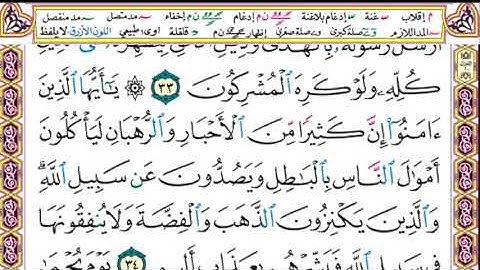 م إقلاب غنة إدغام بلاغنة ن م إدغام ن م إخفاء مد متصل مد منفصل
المد اللازم صلة كبرى صلة صغرى إظهار ن م قلقلة طبيعي اللون الأزرق لا يلفظ
أَرْسَلَ رَسُولَهُۥ بِٱلْهُدَىٰ وَدِينِ
كُلِّهِۦ وَلَوْ كَرِهَ ٱلْمُشْرِكُونَ ٣٣ ۞ يَـٰٓأَيُّهَا ٱلَّذِينَ
ءَامَنُوٓا۟ إِنَّ كَثِيرًا مِّنَ ٱلْأَحْبَارِ وَٱلرُّهْبَانِ لَيَأْكُلُونَ
أَمْوَٰلَ ٱلنَّاسِ بِٱلْبَـٰطِلِ وَيَصُدُّونَ عَن سَبِيلِ ٱللَّهِ ۗ
وَٱلَّذِينَ يَكْنِزُونَ ٱلذَّهَبَ وَٱلْفِضَّةَ وَلَا يُنفِقُونَهَا
فِى سَبِيلِ ٱللَّهِ فَبَشِّرْهُم بِعَذَابٍ أَلِيمٍ ٣٤ يَوْمَ يُحْمَىٰ